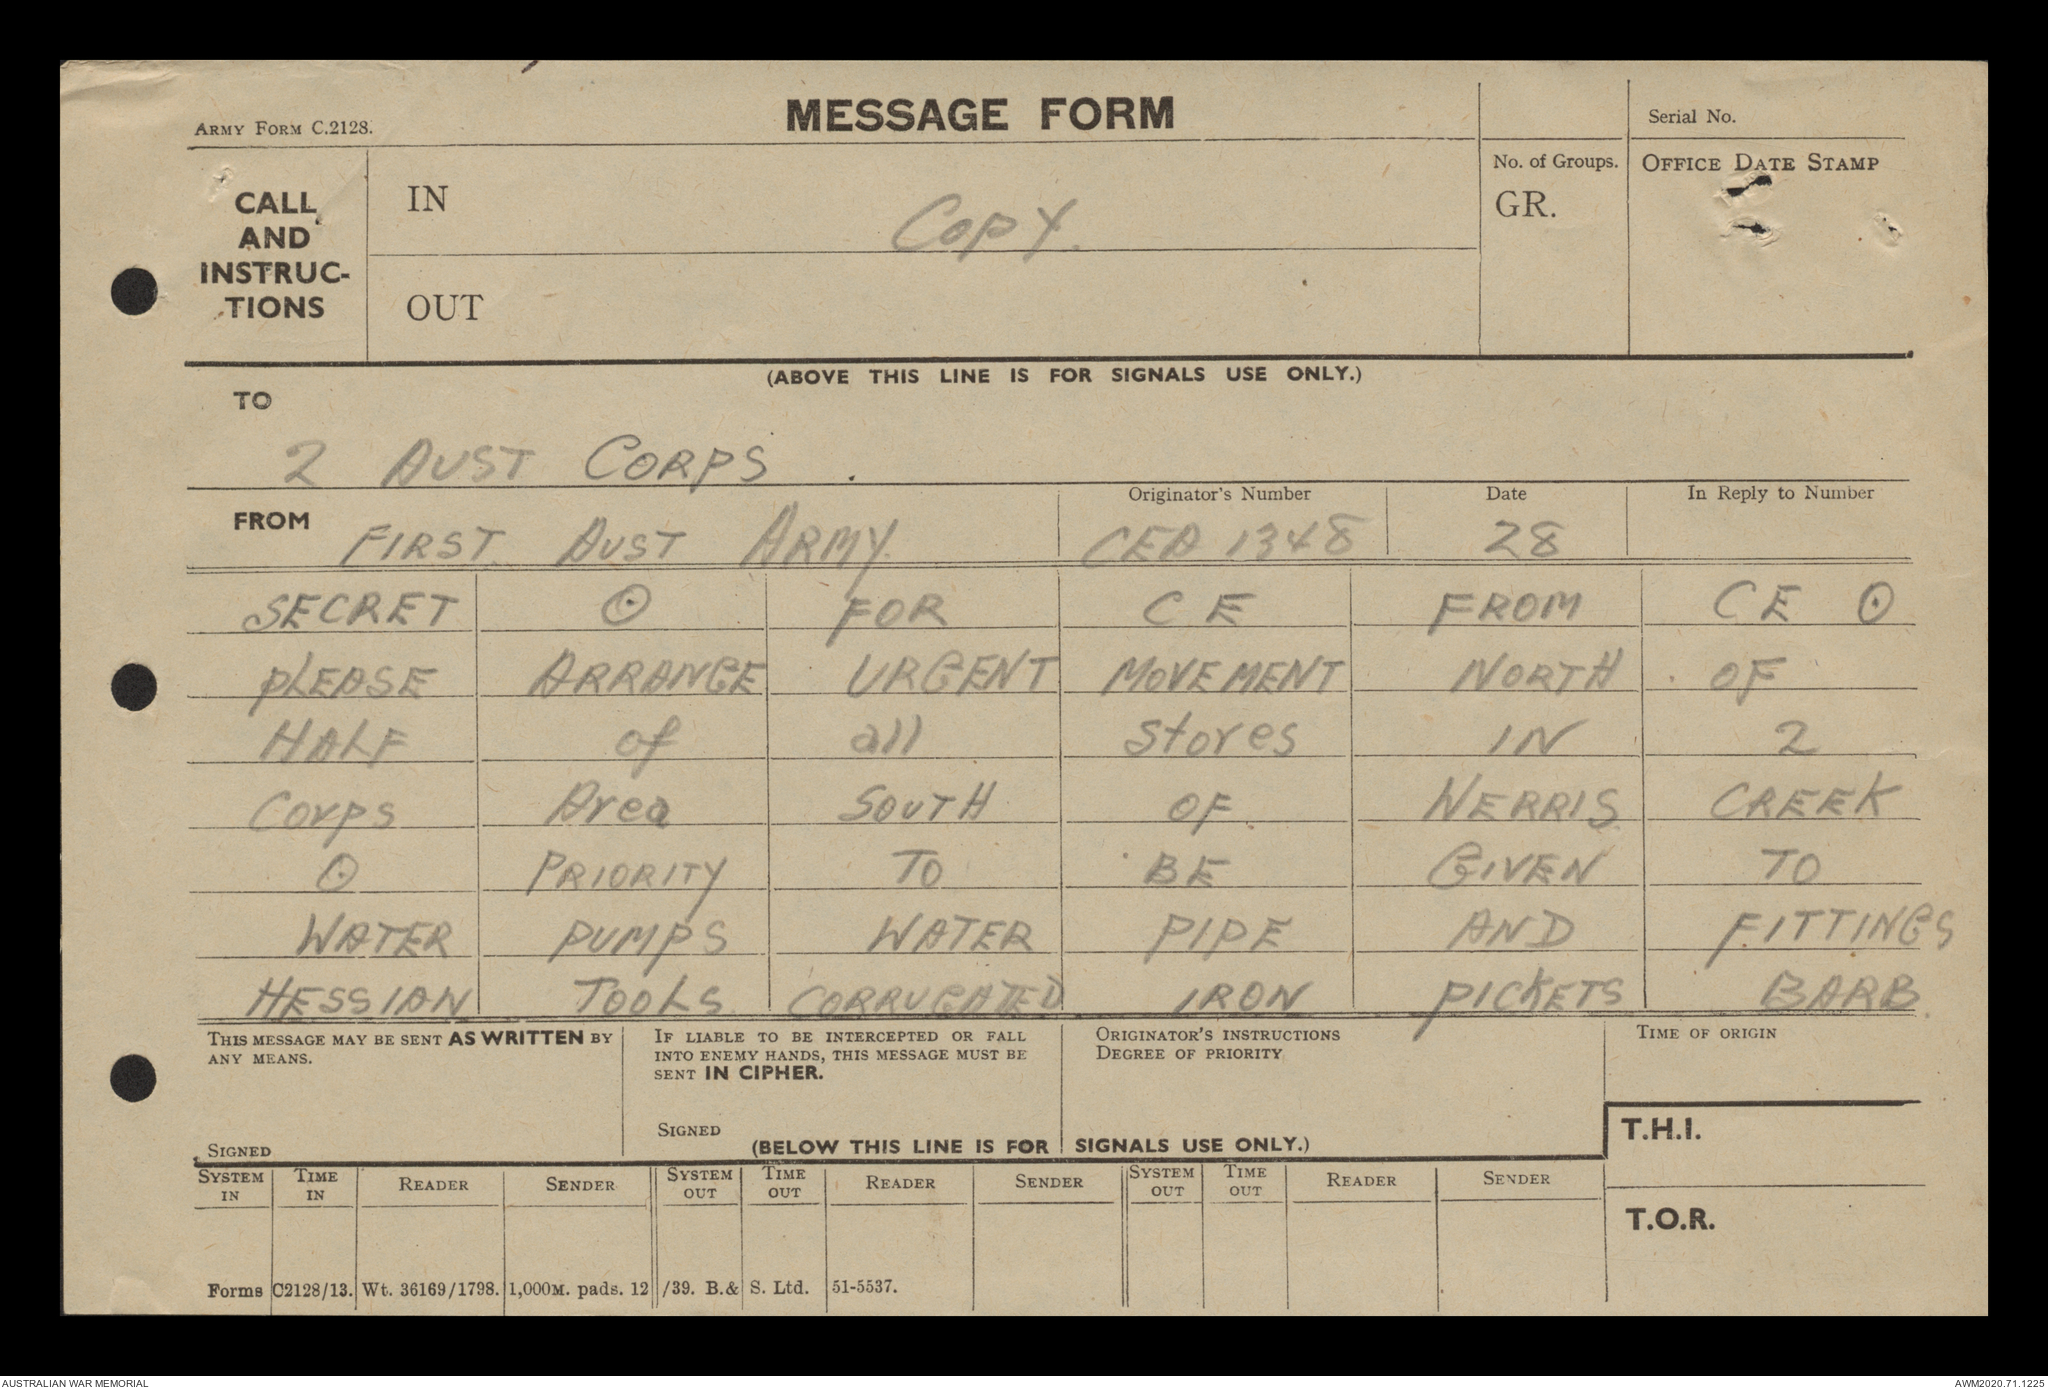 ARMY FORM C.2128.
MESSAGE FORM
Serial No.
CALL AND INSTRUC-TIONS
IN
Copy.
No. of Groups.
GR.
OFFICE DATE STAMP
OUT
(ABOVE THIS LINE IS FOR SIGNALS USE ONLY.)
TO
2 AUST CORPS.
FROM FIRST AUST ARMY
Originator's Number
CEA 1348
Date
28
In Reply to Number
SECRET ⊙ FOR CE FROM CE ⊙
PLEASE ARRANGE URGENT MOVEMENT NORTH OF
HALF of all stores IN 2
Corps Area SOUTH OF WERRIS CREEK
⊙ PRIORITY TO BE GIVEN TO
WATER PUMPS WATER PIPE AND FITTINGS
HESSIAN TOOLS CORRUGATED IRON PICKETS BARB
THIS MESSAGE MAY BE SENT AS WRITTEN BY
ANY MEANS.
SIGNED
IF LIABLE TO BE INTERCEPTED OR FALL
INTO ENEMY HANDS, THIS MESSAGE MUST BE
SENT IN CIPHER.
SIGNED
ORIGINATOR'S INSTRUCTIONS
DEGREE OF PRIORITY
TIME OF ORIGIN
(BELOW THIS LINE IS FOR SIGNALS USE ONLY.)
T.H.I.
SYSTEM IN TIME IN READER SENDER SYSTEM OUT TIME OUT READER SENDER SYSTEM OUT TIME OUT READER SENDER
T.O.R.
Forms C2128/13. Wt. 36169/1798. 1,000M. pads. 12/39. B.& S. Ltd. 51-5537.
AUSTRALIAN WAR MEMORIAL
AWM2020.71.1225